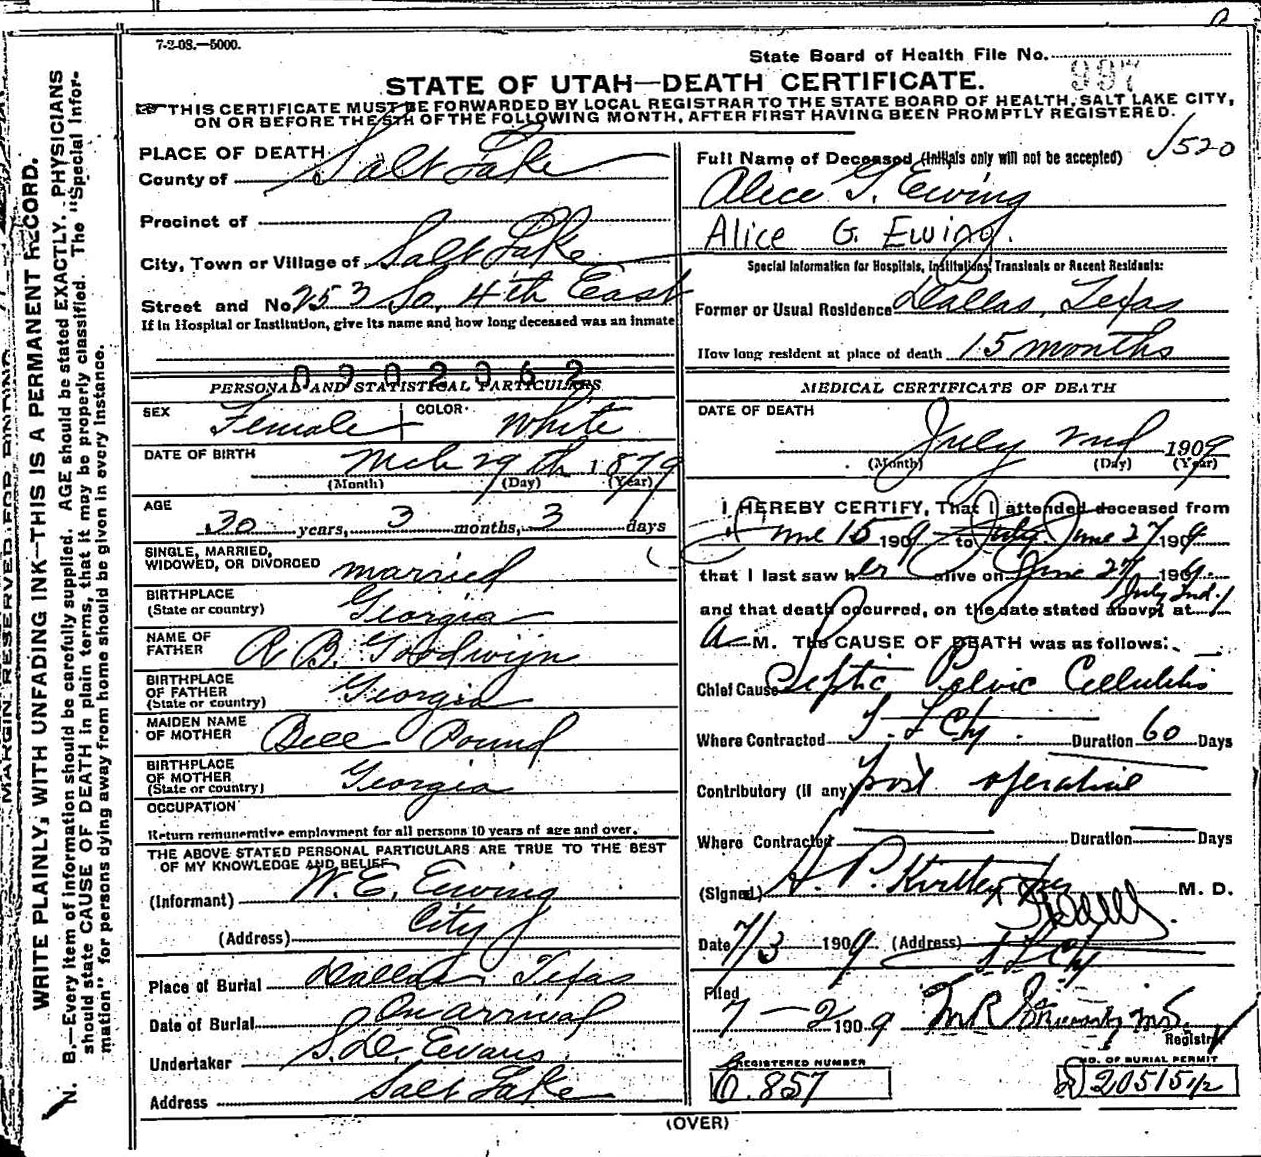 7-2-08.—5000.
State Board of Health File No. 997
STATE OF UTAH—DEATH CERTIFICATE.
THIS CERTIFICATE MUST BE FORWARDED BY LOCAL REGISTRAR TO THE STATE BOARD OF HEALTH, SALT LAKE CITY,
ON OR BEFORE THE 5TH OF THE FOLLOWING MONTH, AFTER FIRST HAVING BEEN PROMPTLY REGISTERED.
MARGIN RESERVED FOR BINDING
WRITE PLAINLY, WITH UNFADING INK—THIS IS A PERMANENT RECORD.
N. B.—Every item of information should be carefully supplied. AGE should be stated EXACTLY. PHYSICIANS
should state CAUSE OF DEATH in plain terms, that it may be properly classified. The "Special Infor-
mation" for persons dying away from home should be given in every instance.
PLACE OF DEATH
County of Salt Lake
Precinct of
City, Town or Village of Salt Lake
Street and No. 253 So. 4th East
If in Hospital or Institution, give its name and how long deceased was an inmate
0902062
PERSONAL AND STATISTICAL PARTICULARS
SEX Female COLOR White
DATE OF BIRTH Mch 29th 1879
(Month) (Day) (Year)
AGE
30 years, 3 months, 3 days
SINGLE, MARRIED,
WIDOWED, OR DIVORCED married
BIRTHPLACE
(State or country) Georgia
NAME OF
FATHER R. B. Goodwijn
BIRTHPLACE
OF FATHER
(State or country) Georgia
MAIDEN NAME
OF MOTHER Bell Pound
BIRTHPLACE
OF MOTHER
(State or country) Georgia
OCCUPATION
Return remunerative employment for all persons 10 years of age and over.
THE ABOVE STATED PERSONAL PARTICULARS ARE TRUE TO THE BEST
OF MY KNOWLEDGE AND BELIEF
(Informant) W. E. Ewing
(Address) City
Place of Burial Dallas, Texas
Date of Burial On arrival
Undertaker S. D. Evans
Address Salt Lake
Full Name of Deceased (Initials only will not be accepted) 1520
Alice G. Ewing
Alice G. Ewing.
Special Information for Hospitals, Institutions, Transients or Recent Residents:
Former or Usual Residence Dallas, Texas
How long resident at place of death 15 months
MEDICAL CERTIFICATE OF DEATH
DATE OF DEATH
July 2nd 1909
(Month) (Day) (Year)
I HEREBY CERTIFY, That I attended deceased from
June 15 1909 to July June 27 1909
that I last saw her alive on June 27 1909.
July 2nd.
and that death occurred, on the date stated above, at 1
A M. THE CAUSE OF DEATH was as follows:
Chief Cause Septic Pelvic Cellulitis
Where Contracted S. L. Cy. Duration 60 Days
Contributory (if any) post operative
Where Contracted Duration Days
(Signed) H. P. Kirtley M. D.
Date 7/3 1909 (Address) S. L. Cy
Filed
7—2 1909
Registrar
REGISTERED NUMBER
O. 857
NO. OF BURIAL PERMIT
(OVER)